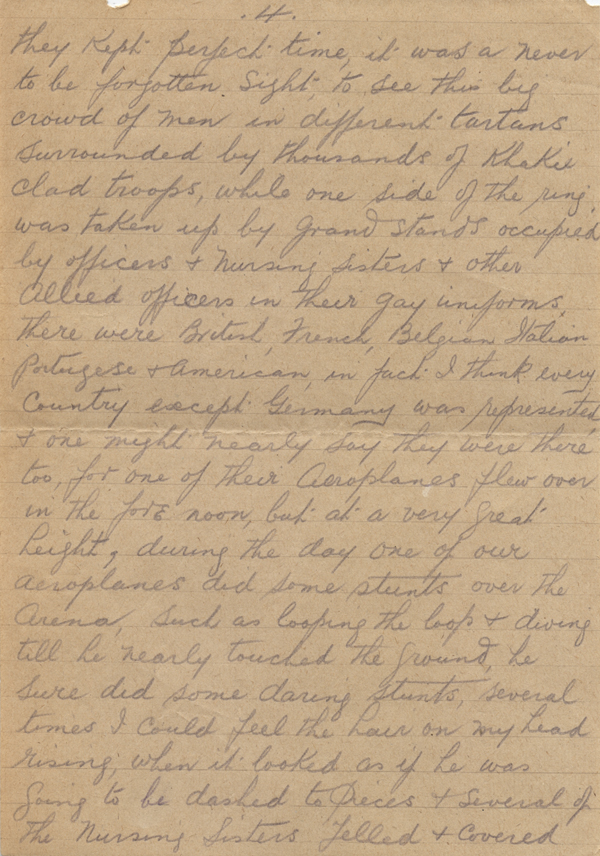 .4.
they kept perfect time, it was a never
to be forgotten sight, to see this big
crowd of men in different tartans
surrounded by thousands of Khakie
clad troops, while one side of the ring,
was taken up by grand stands occupied
by officers + Nursing Sisters + other
Allied officers in their gay uniforms,
there were British, French, Belgian Italian
Portugese + American, in fact I think every
Country except Germany was represented
+ one might nearly say they were there
too, for one of their Aeroplanes flew over
in the fore noon, but at a very great
height, during the day one of our
aeroplanes did some stunts over the
Arena, such as looping the loop + diving
till he nearly touched the ground, he
sure did some daring stunts, several
times I could feel the hair on my head
rising, when it looked as if he was
going to be dashed to pieces + several of
the Nursing Sisters Yelled + Covered